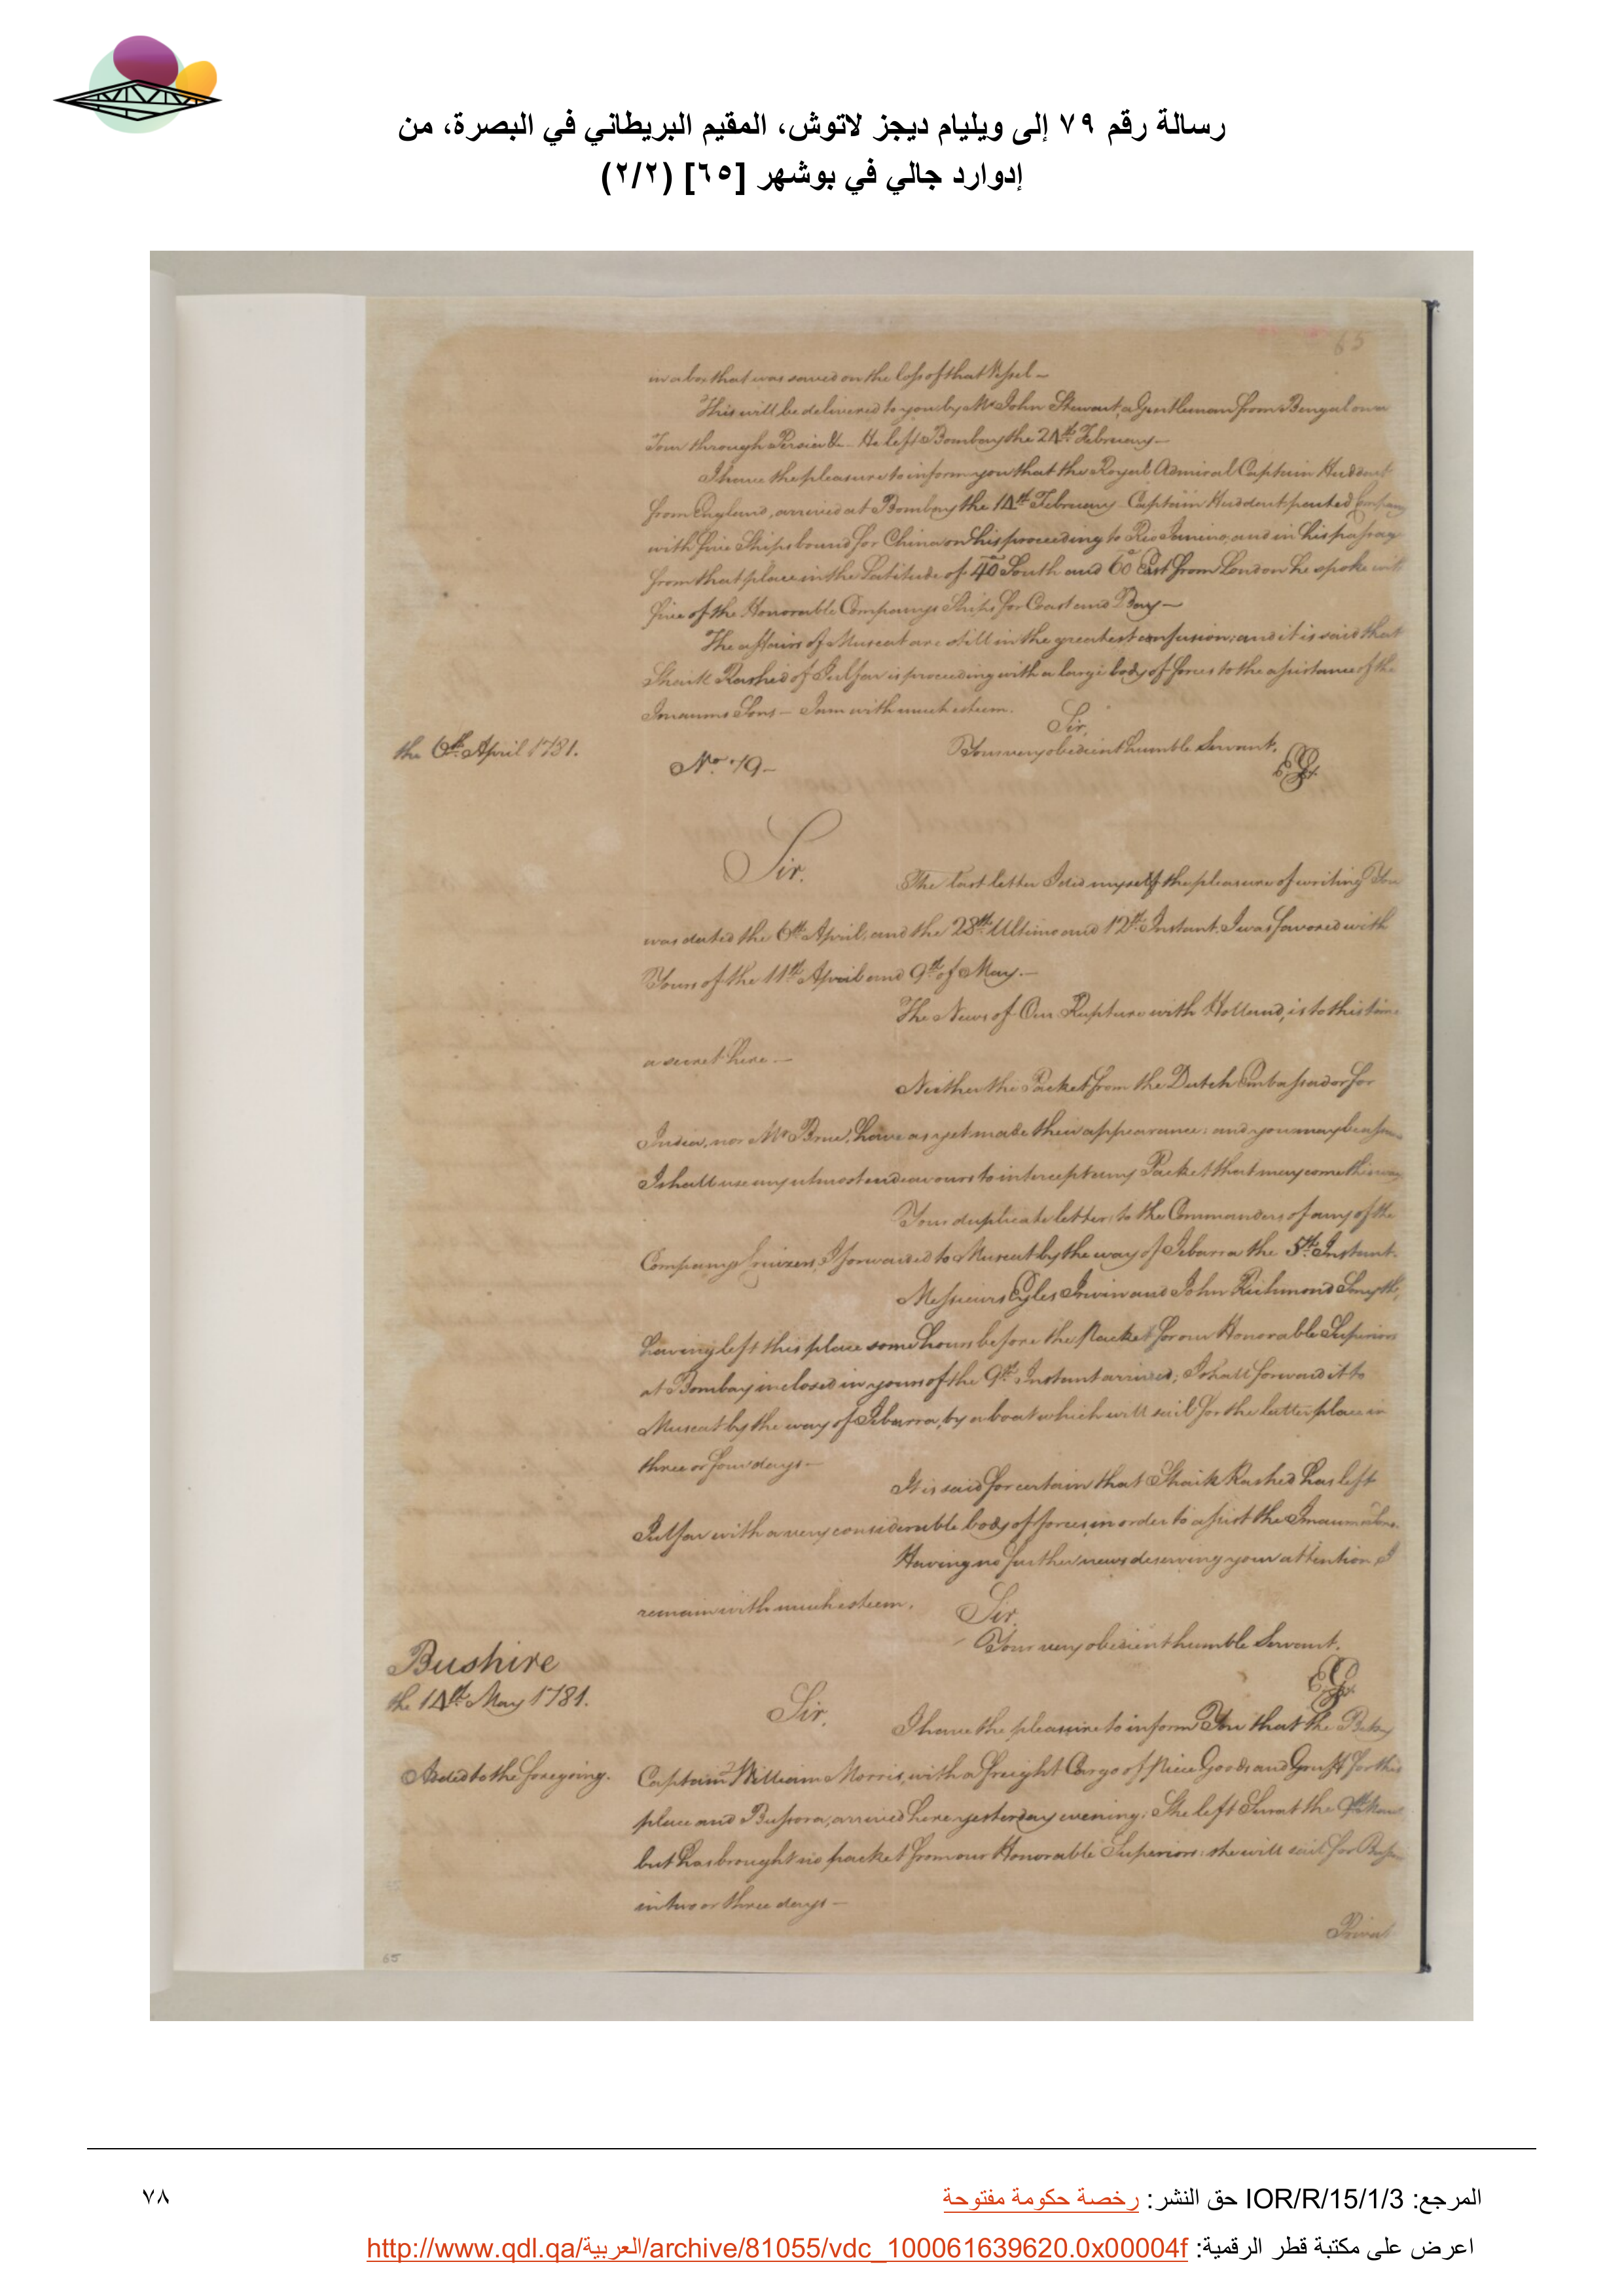 رسالة رقم ٧٩ إلى ويليام ديجز لاتوش، المقيم البريطاني في البصرة، من
إدوارد جالي في بوشهر [٦٥] (٢/٢)
65
in a box that was saved on the loss of that Vessel —
This will be delivered to you by Mr. John Stewart, a Gentleman from Bengal on a
Tour through Persia &c. He left Bombay the 24th. February —
I have the pleasure to inform you that the Royal Admiral Captain Huddart
from England, arrived at Bombay the 14th. February — Captain Huddart parted Company
with five Ships bound for China on his proceeding to Rio Janiero, and in his passage
from that place in the Latitude of 40 South and 60 East from London he spoke with
five of the Honorable Companys Ships for Coast and Bay —
The affairs of Muscat are still in the greatest confusion; and it is said that
Shaik Rashid of Julfar is proceeding with a large body of forces to the assistance of the
Imaums Sons — I am with much esteem.
Sir,
the 6th. April 1781.
Your very obedient humble Servant,
No. 79 —
EG
Sir,
The last letter I did myself the pleasure of writing You
was dated the 6th. April, and the 28th. Ultimo and 12th. Instant. I was favored with
Yours of the 11th. April and 9th. of May. —
The News of Our Rupture with Holland, is to this time
a secret here —
Neither the Packet from the Dutch Embassador for
India, nor Mr. have as yet made their appearance: and you may be
I shall use my utmost endeavours to intercept any Packet that may come this way
Your duplicate letter, to the Commanders of any of the
Companys Cruizers, I forwarded to Muscat by the way of Zebarra the 5th. Instant.
Messieurs Eyles Irwin and John Richmond Smyth,
having left this place some hours before the Packet for our Honorable Superiors
at Bombay inclosed in yours of the 9th. Instant arrived; I shall forward it to
Muscat by the way of Zebarra, by a boat which will sail for the latter place in
three or four days —
It is said for certain that Shaik Rashed has left
Julfar with a very considerable body of forces in order to assist the Imaums Sons.
Having no further news deserving your attention I
remain with much esteem,
Sir,
Your very obedient humble Servant.
Bushire
the 14th. May 1781.
EG
Sir,
I have the pleasure to inform You that the Betsy
Added to the foregoing.
Captain William Morris, with a freight Cargo of Piece Goods and Gruff for this
place and Bussora, arrived here yesterday evening: She left Surat the
but has brought no packet from our Honorable Superiors: she will sail for
in two or three days —
65
المرجع: IOR/R/15/1/3 حق النشر: رخصة حكومة مفتوحة
٧٨
اعرض على مكتبة قطر الرقمية: http://www.qdl.qa/العربية/archive/81055/vdc_100061639620.0x00004f